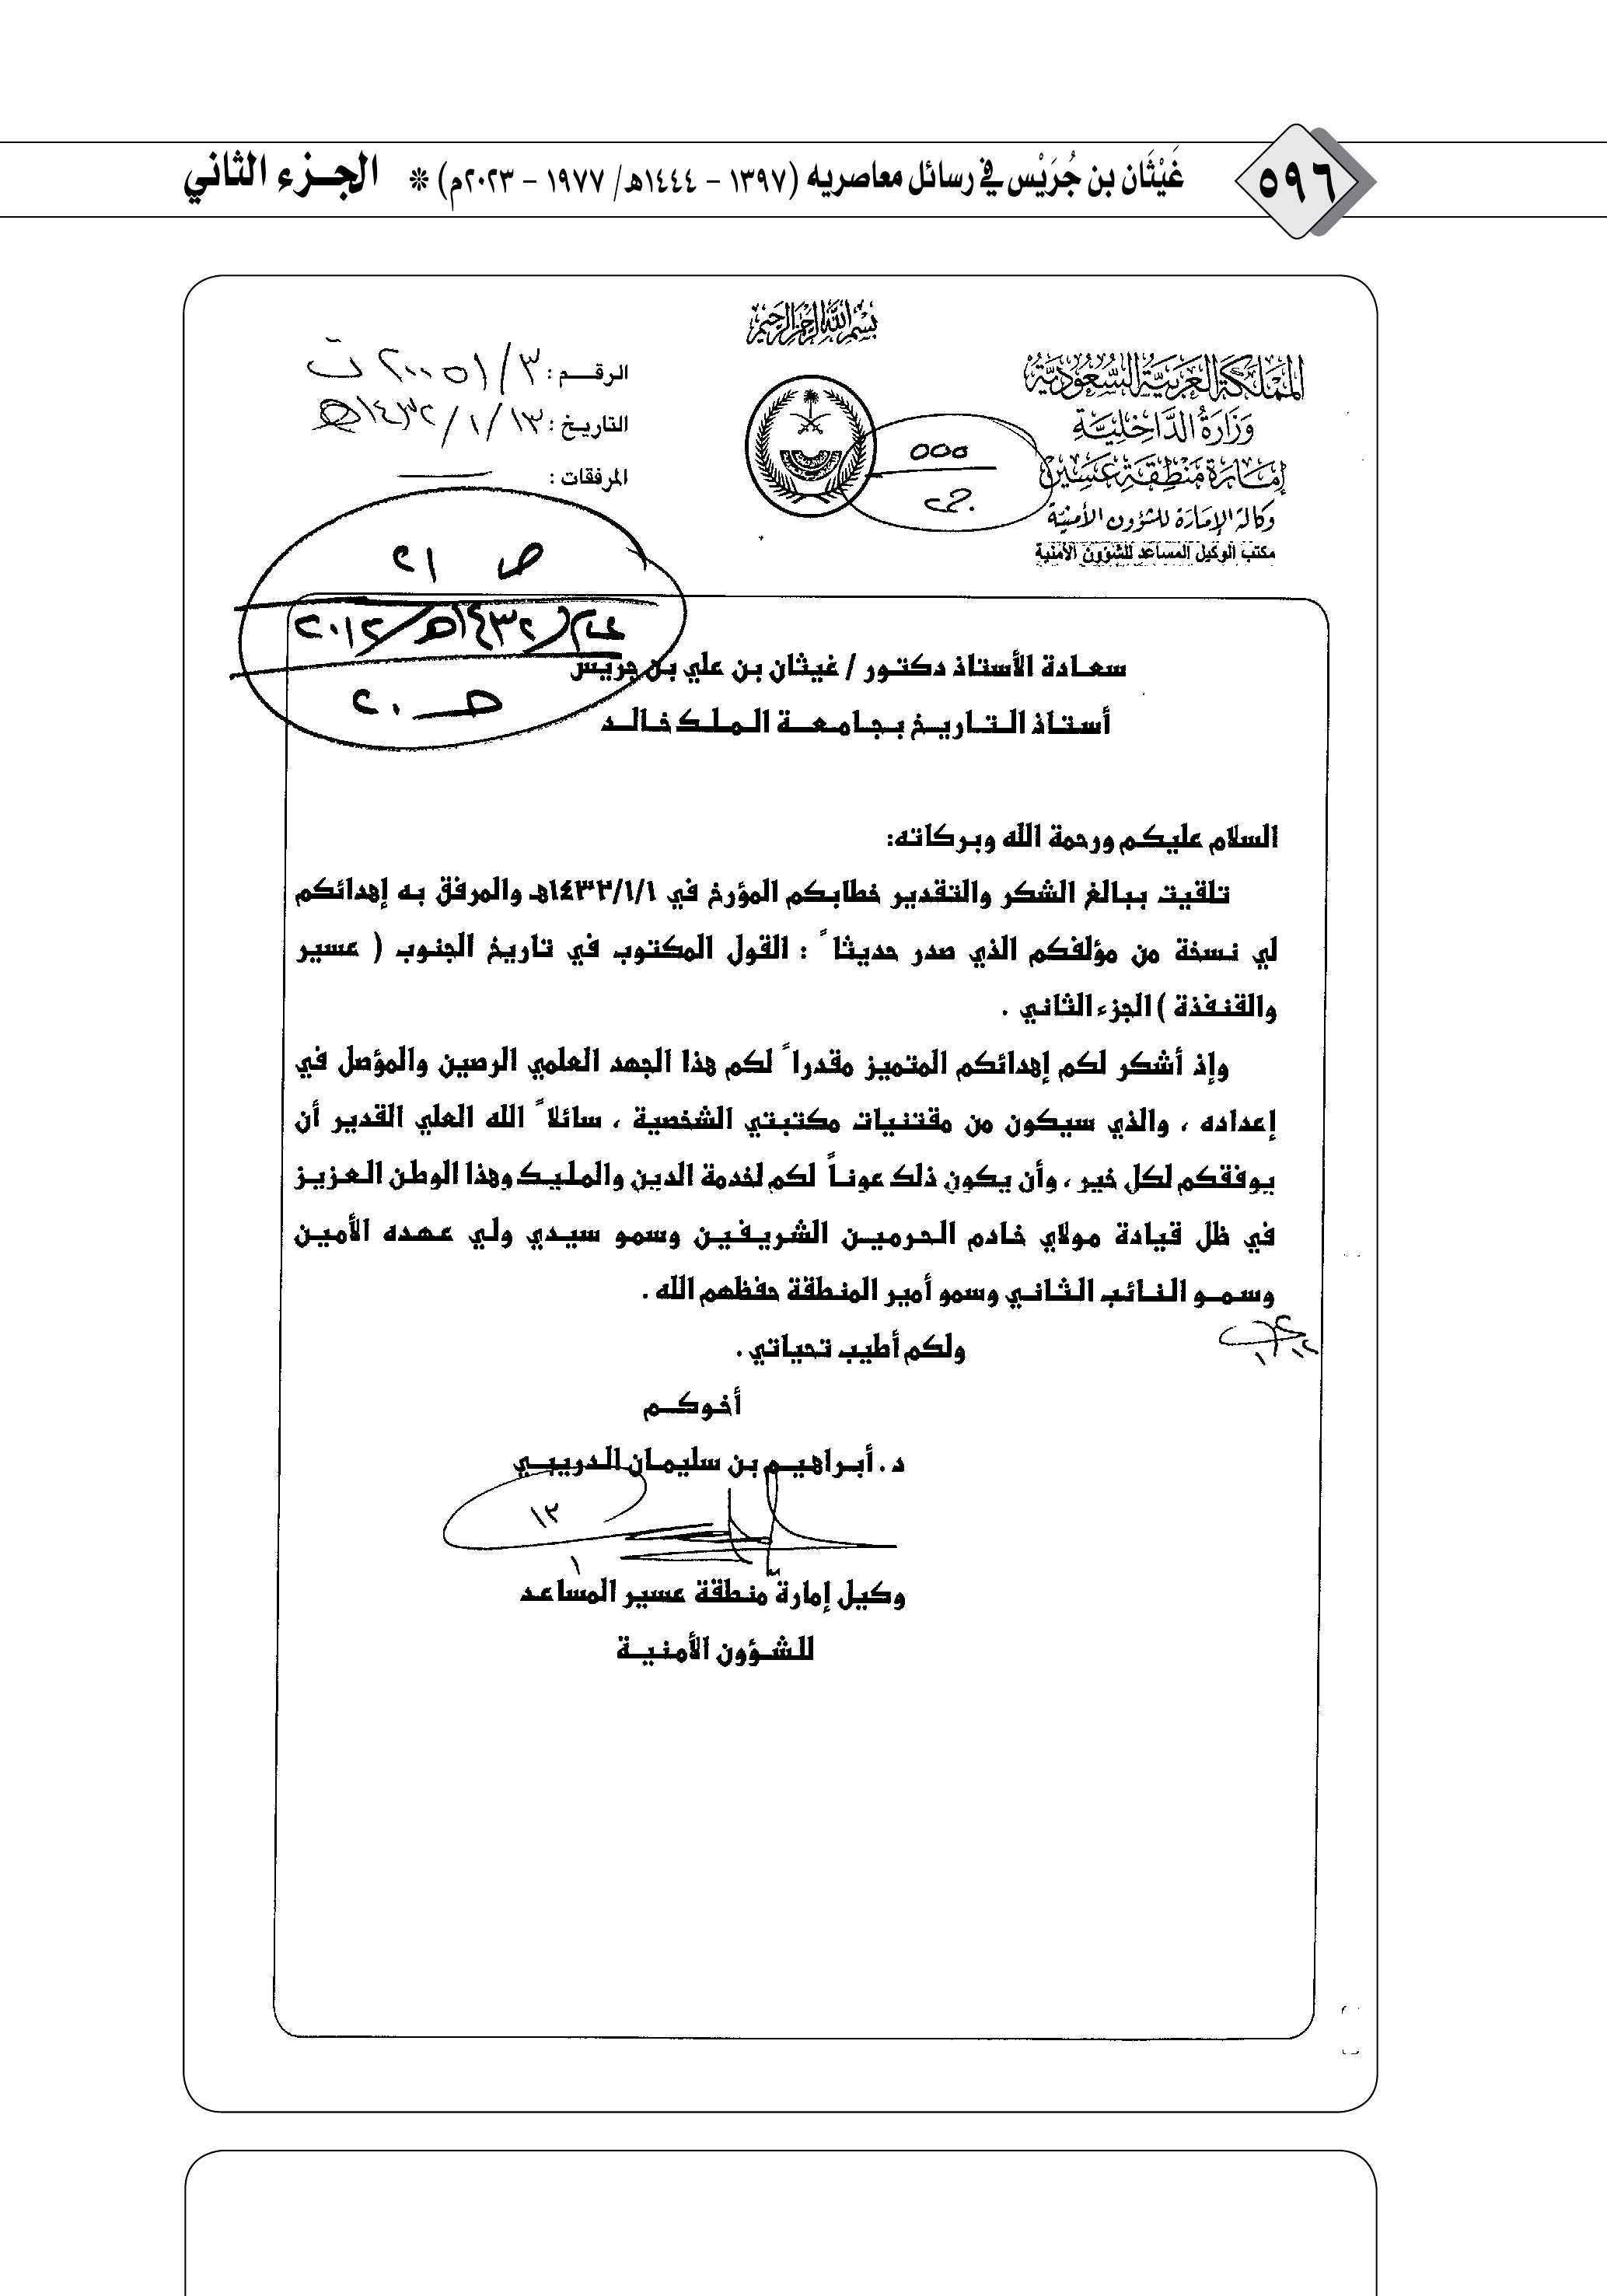 ٥٩٦
غَيْثَان بن جُرَيْس في رسائل معاصريه (١٣٩٧ - ١٤٤٤هـ/ ١٩٧٧ - ٢٠٢٣م) * الجزء الثاني
بسم الله الرحمن الرحيم
المملكة العربية السعودية
وزارة الداخلية
إمارة منطقة عسير
وكالة الإمارة للشؤون الأمنية
مكتب الوكيل المساعد للشؤون الأمنية
٥٥٥
الرقم :
التاريخ : ١٣ / ١ / ١٤٣٢هـ
المرفقات :
ص ٢١
سعادة الأستاذ دكتور / غيثان بن علي بن جريس
أستاذ التاريخ بجامعة الملك خالد
السلام عليكم ورحمة الله وبركاته:
تلقيت ببالغ الشكر والتقدير خطابكم المؤرخ في ١٤٣٢/١/١هـ والمرفق به إهدائكم
لي نسخة من مؤلفكم الذي صدر حديثاً : القول المكتوب في تاريخ الجنوب ( عسير
والقنفذة ) الجزء الثاني .
وإذ أشكر لكم إهدائكم المتميز مقدراً لكم هذا الجهد العلمي الرصين والمؤصل في
إعداده ، والذي سيكون من مقتنيات مكتبتي الشخصية ، سائلاً الله العلي القدير أن
يوفقكم لكل خير ، وأن يكون ذلك عوناً لكم لخدمة الدين والمليك وهذا الوطن العزيز
في ظل قيادة مولاي خادم الحرمين الشريفين وسمو سيدي ولي عهده الأمين
وسمو النائب الثاني وسمو أمير المنطقة حفظهم الله .
ولكم أطيب تحياتي .
أخوكم
د. أبراهيم بن سليمان الدريبي
١٣
١
وكيل إمارة منطقة عسير المساعد
للشؤون الأمنية